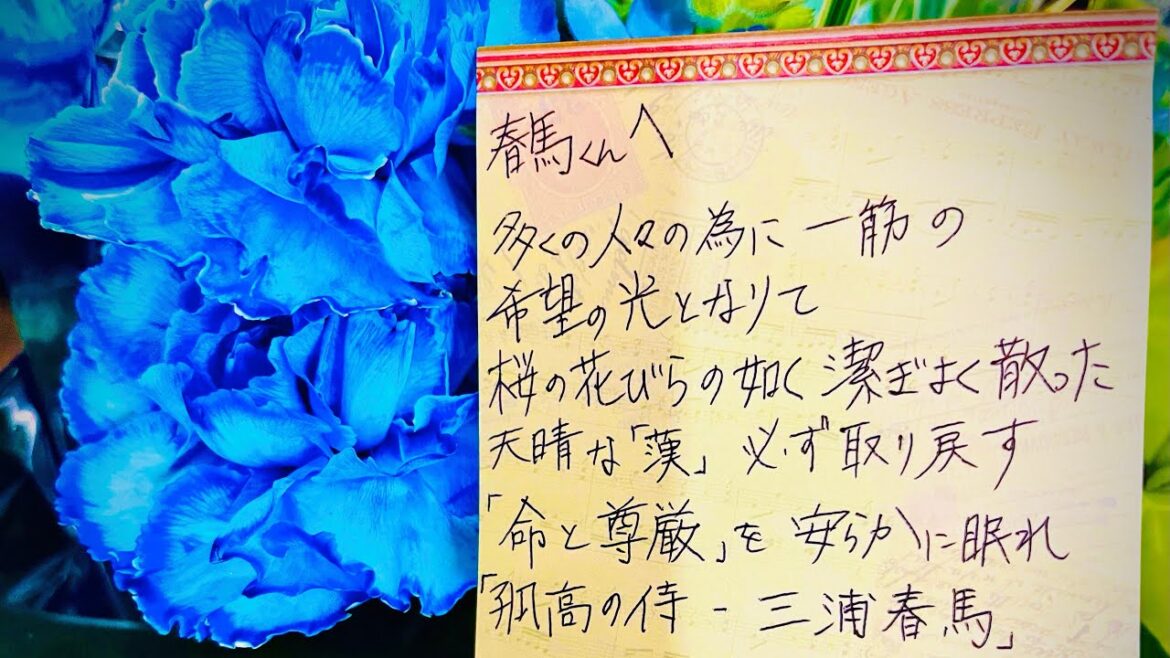 春馬くんへ
多くの人々の為に一筋の
希望の光となりて
桜の花びらの如く潔ぎよく散った
天晴な「漢」必ず取り戻す
「命と尊厳」を安らかに眠れ
「孤高の侍-三浦春馬」